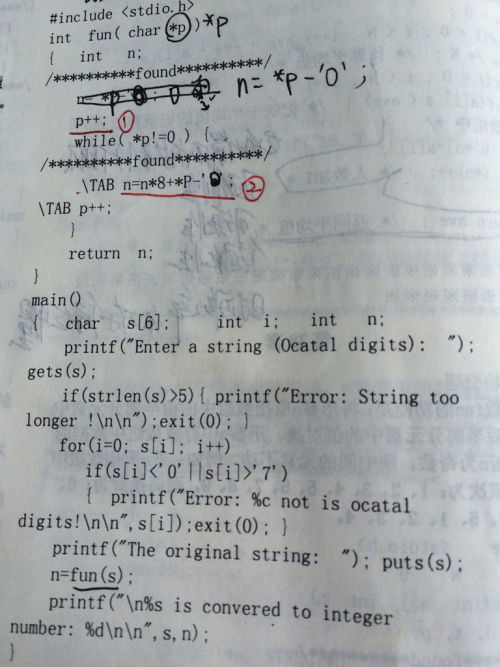 #include <stdio.h>
int fun( char *p ) *p
{ int n;
/**********found**********/
n= *p-'0' ;
p++; ①
while( *p!=0 ) {
/**********found**********/
\TAB n=n*8+*P-'0'; ②
\TAB p++;
}
return n;
}
main()
{ char s[6]; int i; int n;
printf("Enter a string (Ocatal digits): ");
gets(s);
if(strlen(s)>5){ printf("Error: String too
longer !\n\n");exit(0); }
for(i=0; s[i]; i++)
if(s[i]<'0'||s[i]>'7')
{ printf("Error: %c not is ocatal
digits!\n\n",s[i]);exit(0); }
printf("The original string: "); puts(s);
n=fun(s);
printf("\n%s is convered to integer
number: %d\n\n",s,n);
}